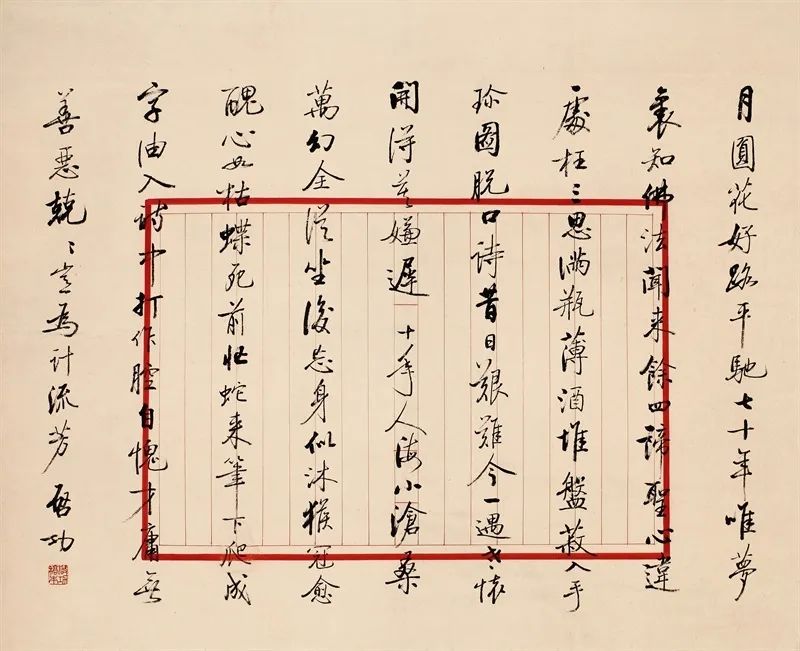 月圓花好路平馳七十年唯夢
裏知佛法聞来餘四諦聖心違
處枉三思滿瓶薄酒堆盤菽入手
珍圖脫口詩昔日艱難今一遇老懷
開得莫嫌遲 十年人海小滄桑
萬幻全從坐後忘身似沐猴冠愈
醜心如枯蝶死前忙蛇来筆下爬成
字油入詩中打作腔自愧才庸無
善惡兢〻豈為計流芳 啓功